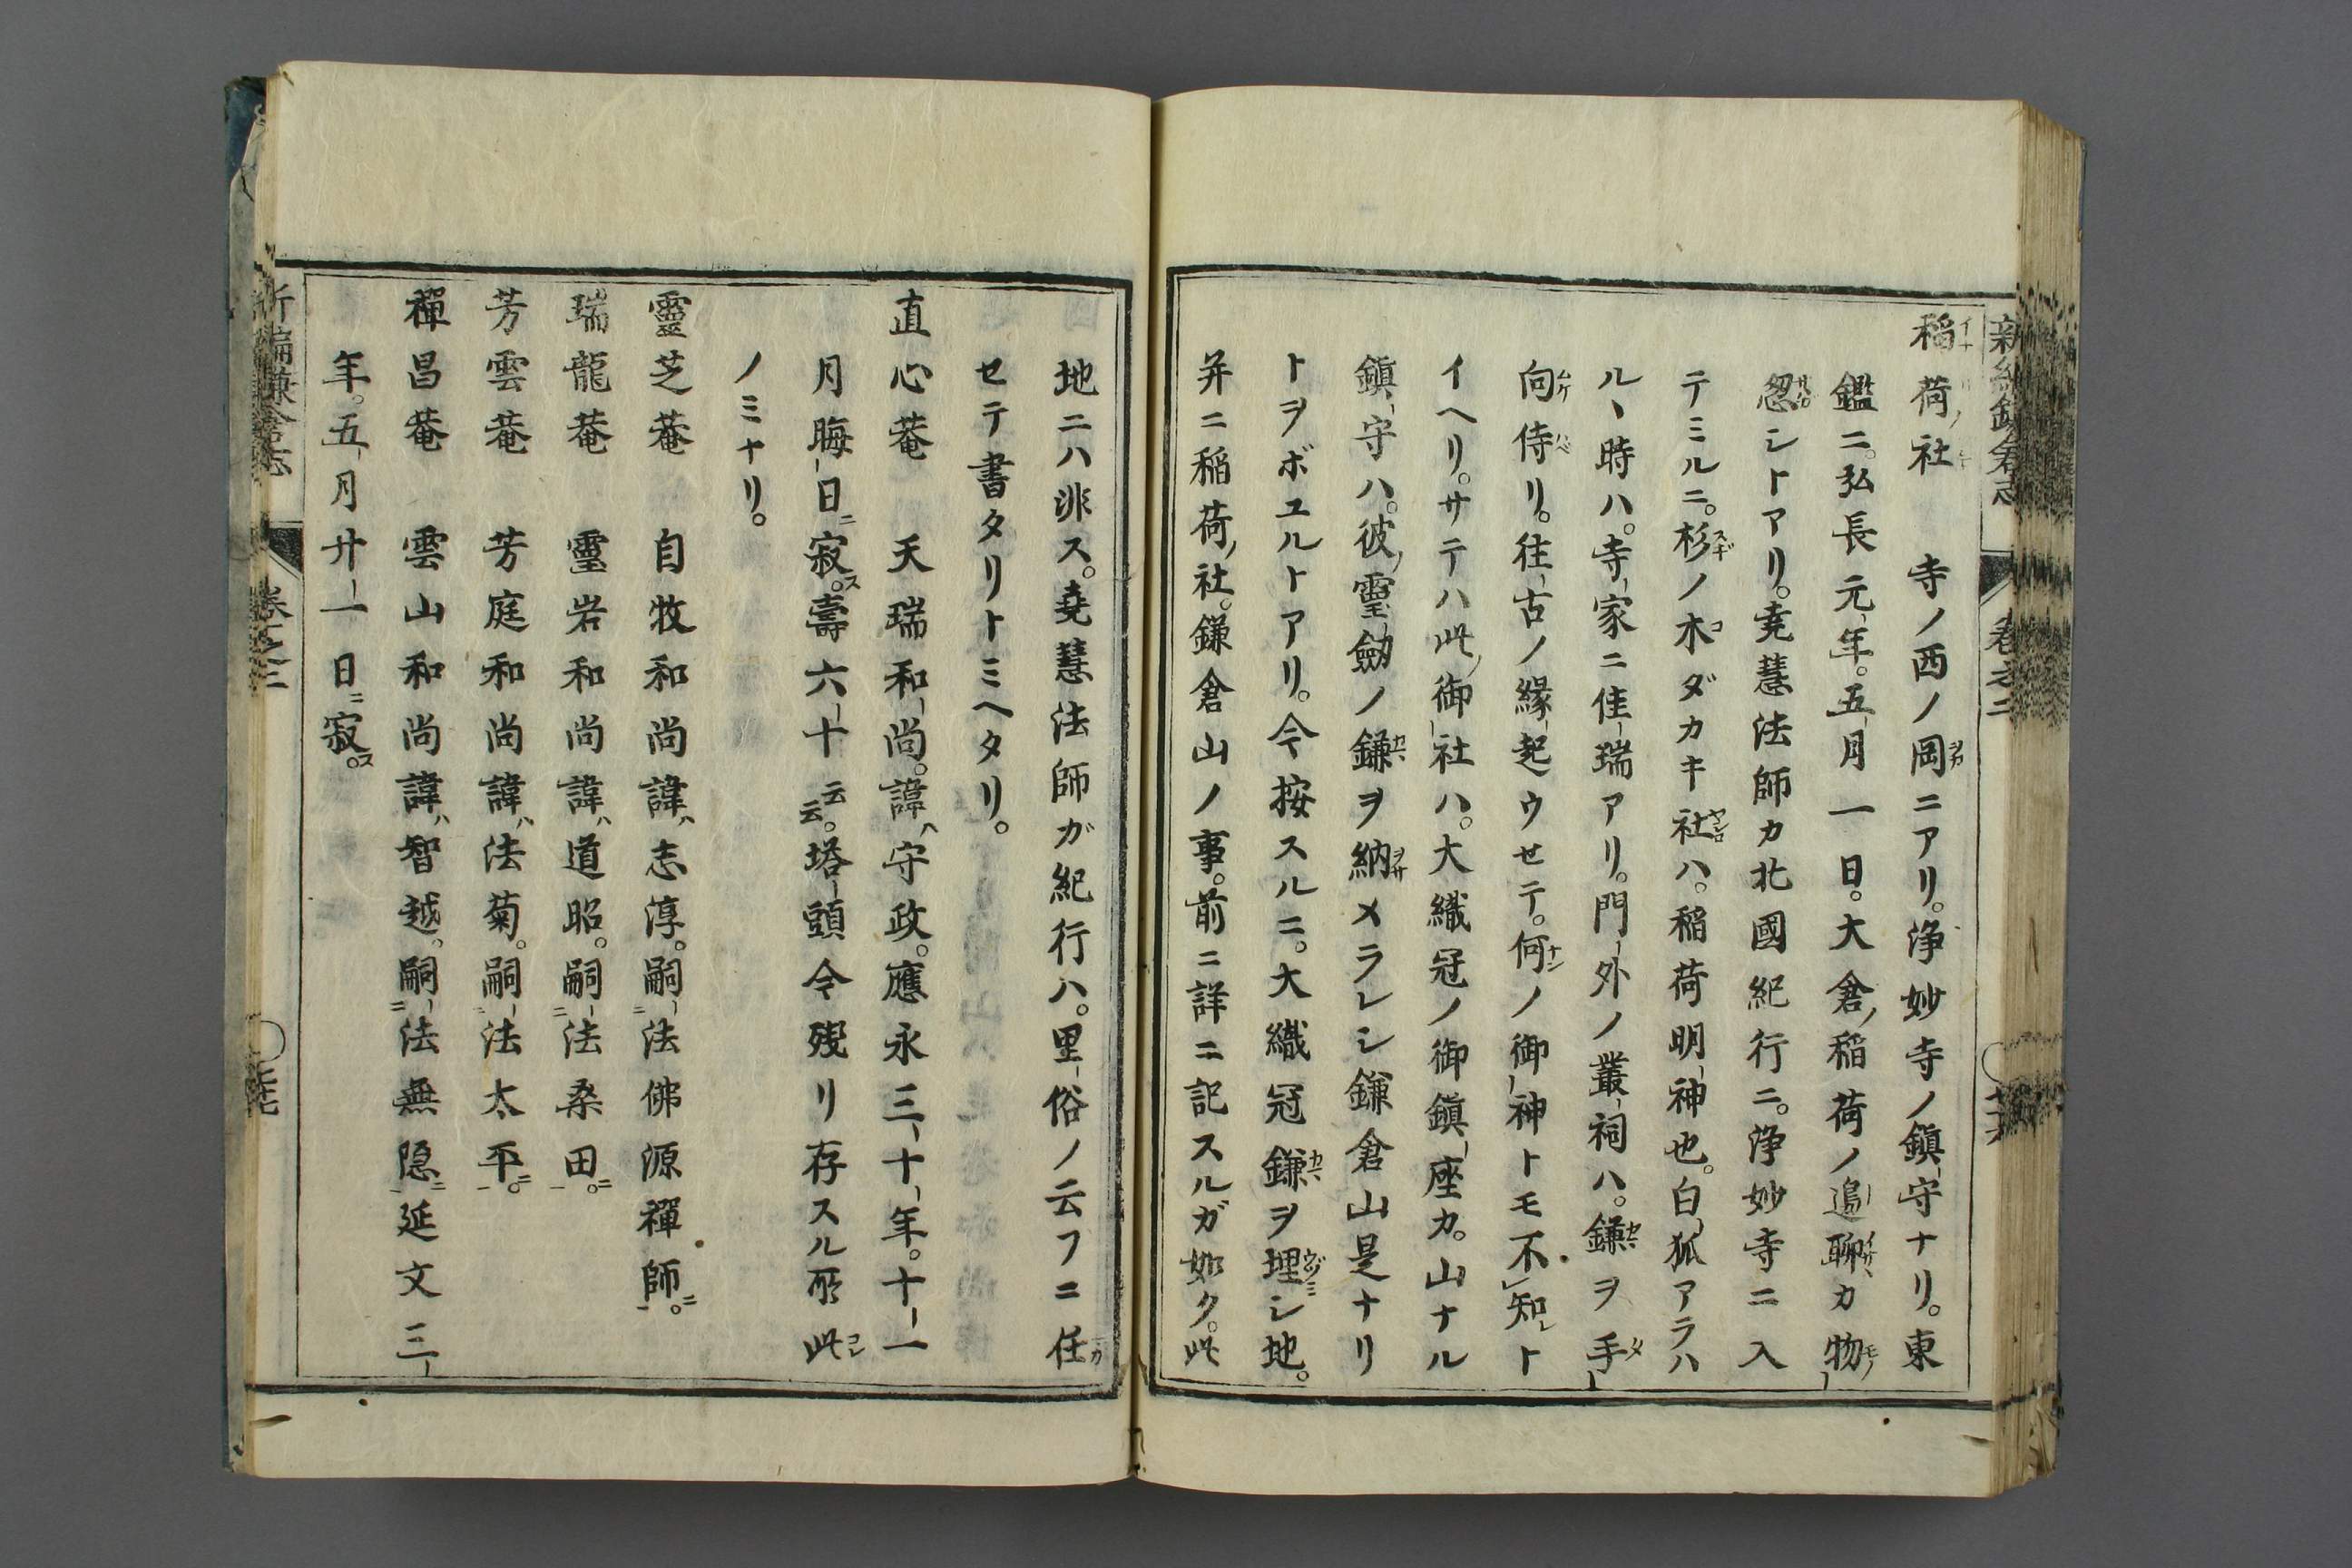 稲荷社　寺ノ西ノ岡ニアリ。浄妙寺ノ鎮守ナリ。東
鑑ニ。弘長元年。五月一日。大倉ノ稲荷ノ邉聊カ物
忩シトアリ。尭慧法師カ北國紀行ニ。浄妙寺ニ入
テミルニ。杉ノ木ダカキ社ハ。稲荷明神也。白狐アラハ
ルヽ時ハ。寺家ニ佳瑞アリ。門外ノ叢祠ハ。鎌ヲ手
向侍リ。往古ノ縁起ウせテ。何ノ御神トモ不知ト
イヘリ。サテハ此ノ御社ハ。大織冠ノ御鎮座カ。山ナル
鎮守ハ。彼ノ霊劔ノ鎌ヲ納メラレシ鎌倉山是ナリ
トヲボユルトアリ。今按スルニ。大織冠鎌ヲ埋シ地。
并ニ稲荷ノ社。鎌倉山ノ事。前ニ詳ニ記スルガ如ク。此
地ニハ非ス。尭慧法師ガ紀行ハ。里俗ノ云フニ任
セテ書タリトミヘタリ。
直心菴　天瑞和尚。諱ハ守政。應永三十年。十一
月晦日ニ寂ス。壽六十云云。塔頭今残リ存スル所此
ノミナリ。
靈芝菴　自牧和尚諱ハ志淳。嗣法佛源禪師ニ。
瑞龍菴　霊岩和尚諱ハ道昭。嗣法桑田ニ。
芳雲菴　芳庭和尚諱ハ法菊。嗣法太平ニ。
禪昌菴　雲山和尚諱ハ智越。嗣法無隠ニ延文三
年。五月廿一日ニ寂ス。
新編鎌倉志　巻之二